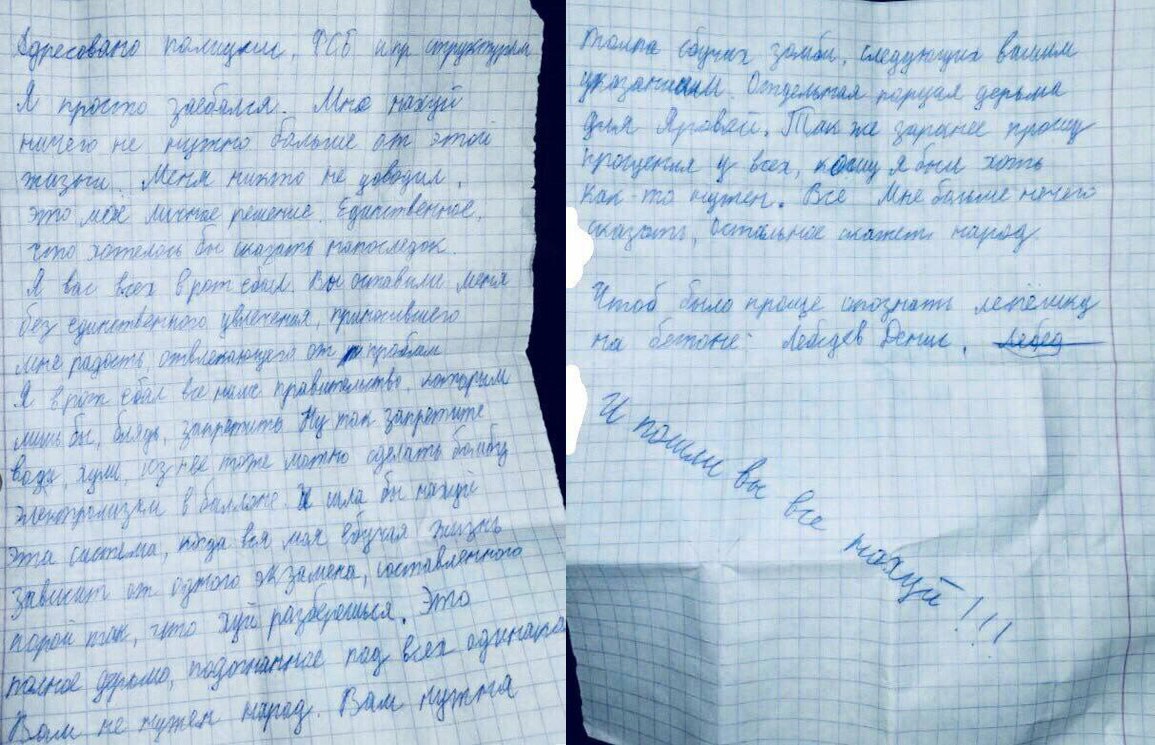 Адресовано полиции, ФСБ и пр структурам
Я просто заебался. Мне нахуй
ничего не нужно больше от этой
жизни. Меня никто не доводил,
это моё личное решение. Единственное,
что хотелось бы сказать напоследок.
Я вас всех в рот ебал. Вы оставили меня
без единственного увлечения, приносившего
мне радость, отвлекающего от проблем
Я в рот ебал все наше правительство, которым
лишь бы, блядь, запретить. Ну так запретите
воду, хули, из неё тоже можно сделать бомбу
электролизом в балконе. И шла бы нахуй
эта система, когда вся моя ебучая жизнь
зависит от одного экзамена, составленного
порой так, что хуй разберешься. Это
полное дерьмо, подогнанное под всех одинаково
Вам не нужен народ. Вам нужна
толпа ебучих зомби, следующих вашим
указаниям. Отдельная порция дерьма
для Яровой. Так же заранее прошу
прощения у всех, кому я был хоть
как то нужен. Все Мне больше нечего
сказать, остальное скажет народ
Чтоб было проще опознать лепёшку
на бетоне: Лебедев Денис. Лебед
И пошли вы все нахуй!!!